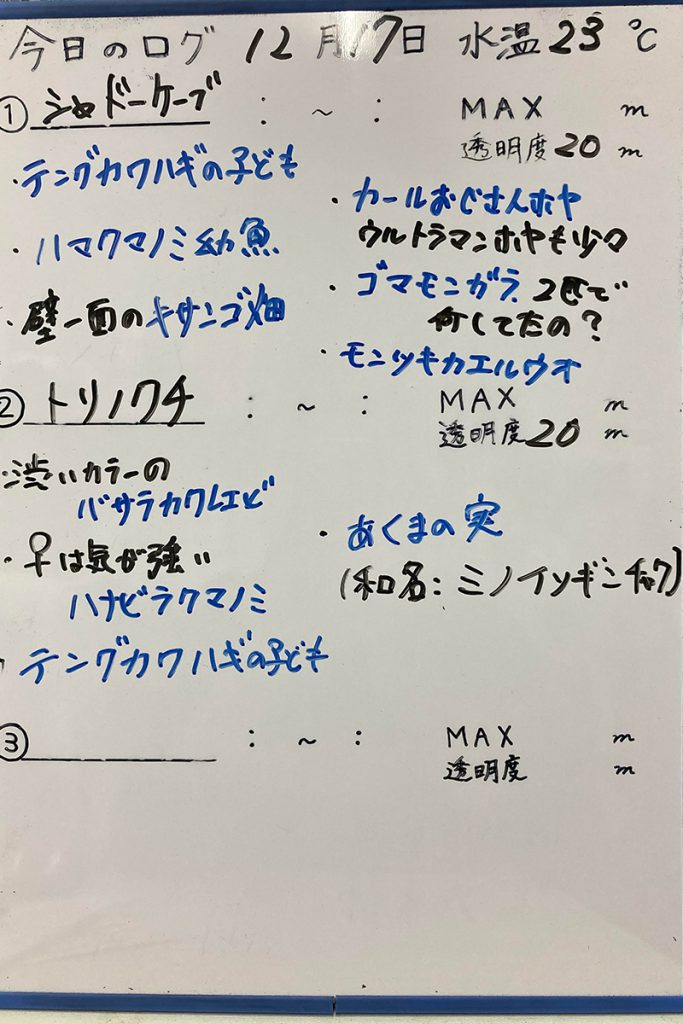 今日のログ 12月17日 水温23℃
① シャドーケーブ : ~ : MAX m
透明度20m
・テングカワハギの子ども
・ハマクマノミ幼魚
・壁一面のキサンゴ畑
・カールおじさんホヤ
ウルトラマンホヤも少々
・ゴマモンガラ、2匹で
何してたの?
・モンツキカエルウオ
② トリノクチ : ~ : MAX m
透明度20m
・渋いカラーの
バサラカクレエビ
・♀は気が強い
ハナビラクマノミ
・テングカワハギの子ども
・あくまの実
(和名:ミノイソギンチャク)
③ : ~ : MAX m
透明度 m